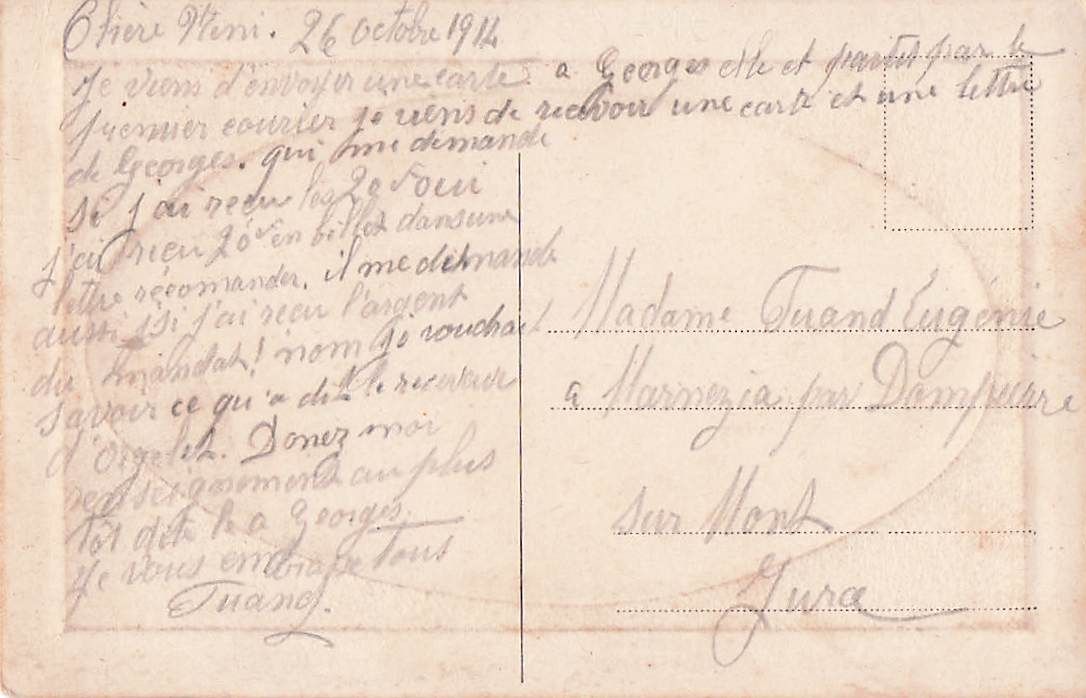 Chère Nini. 26 octobre 1914
Je viens d'envoyer une carte a Georges elle et partit par le
premier courier je viens de recevoir une carte et une lettre
de Georges. qui me demande
si j'ai recu les 20f oui
j'ai recu 20f en billet dans une
lettre récomander. il me demande
aussi si j'ai recu l'argent
du mandat! nom je voudrait
savoir ce qu'a dit le receveur
d'Orgelet. Donez moi
renseignement au plus
tôt dite le a Georges.
Je vous embrasse tous
Tuand.
Madame Tuand Eugénie
a Marnezia par Dompierre
sur Mont
Jura